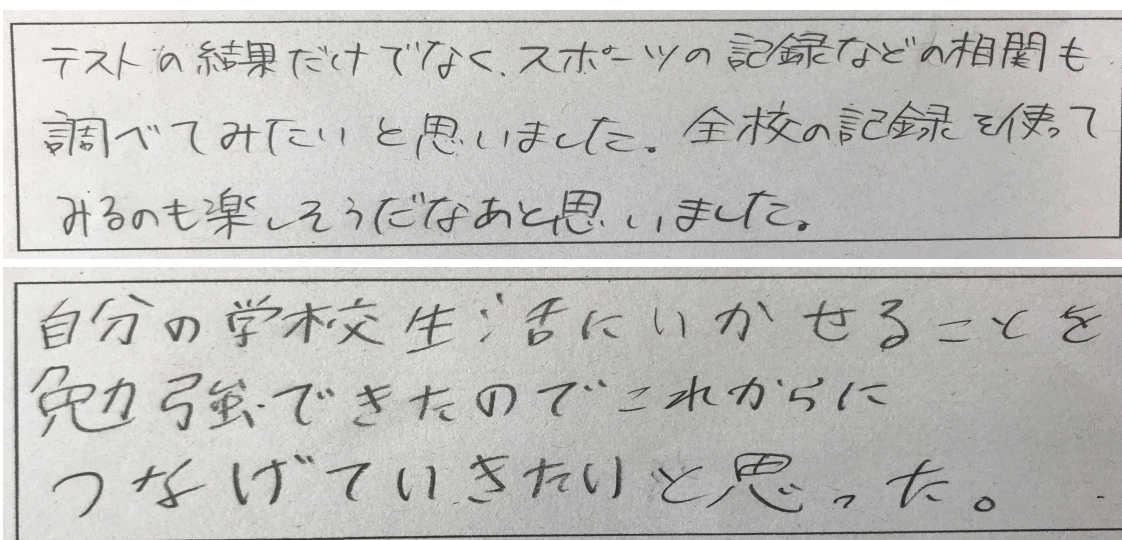 テストの結果だけでなく、スポーツの記録などの相関も
調べてみたいと思いました。全校の記録を使って
みるのも楽しそうだなあと思いました。
自分の学校生活にいかせることを
勉強できたのでこれからに
つなげていきたいと思った。